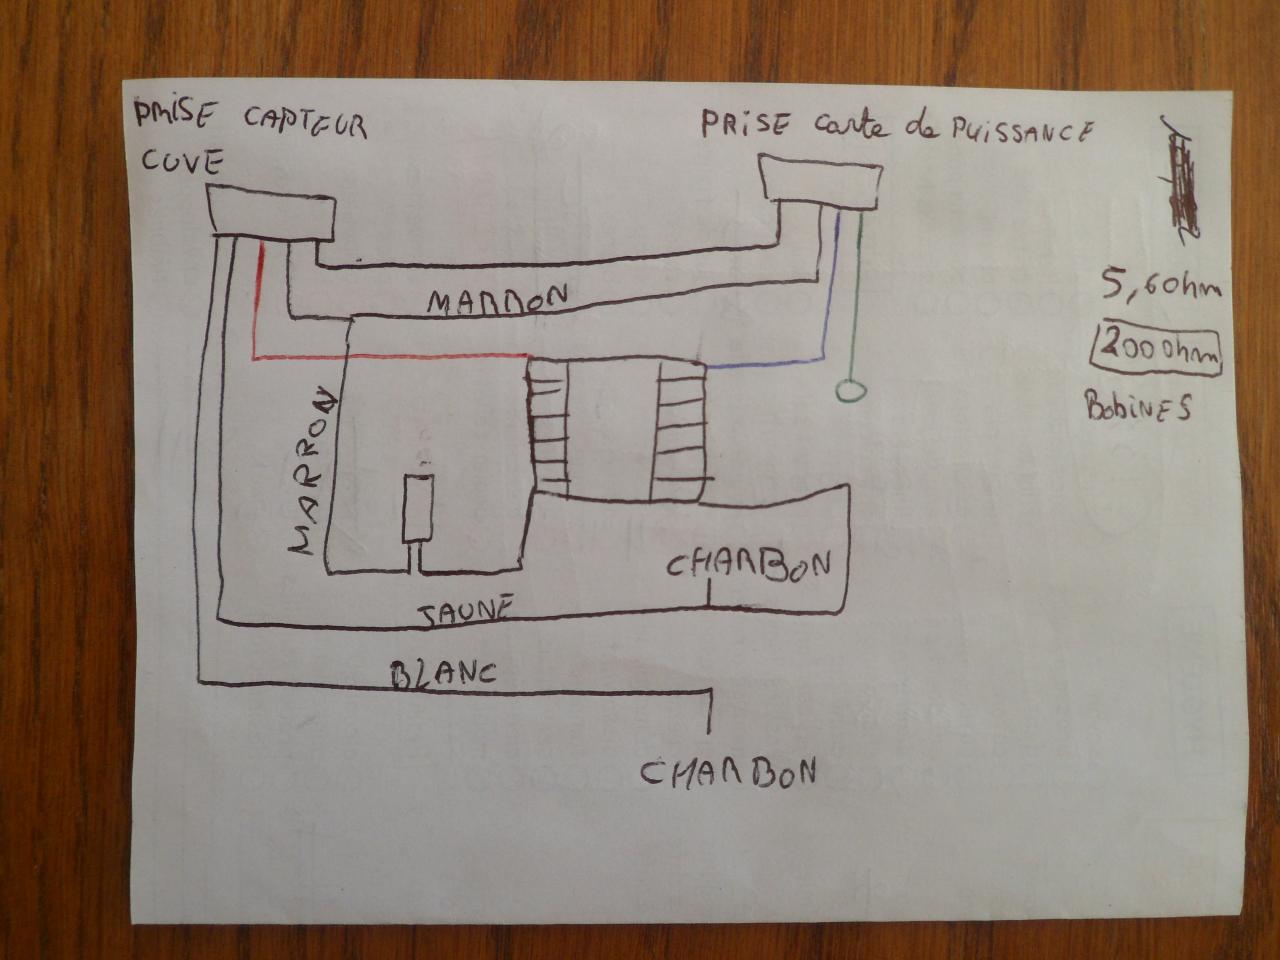 PRISE CAPTEUR
CUVE
PRISE carte de PUISSANCE
MARRON
5,6 ohm
200 ohm
BobiNES
MARRON
CHARBON
JAUNE
BLANC
CHARBON